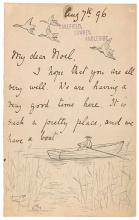 Aug 7th 96
LAKEFIELD,
SAWREY,
AMBLESIDE.
My dear Noel,
I hope that you are all
very well. We are having a
very good time here. It is
such a pretty place, and we
have a boat